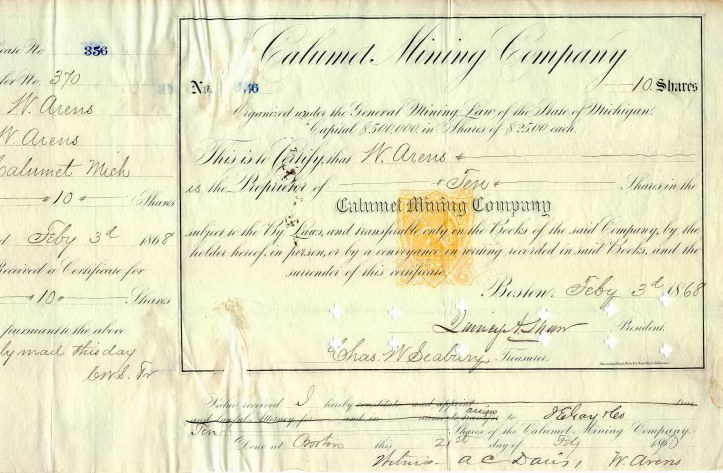 356
No. 370
W. Arens
W. Arens
Calumet Mich
10 Shares
Feby 3d 1868
Received a Certificate for
10 Shares
pursuant to the above
by mail this day
Calumet Mining Company
No. 10 Shares
Organized under the General Mining Law of the State of Michigan.
Capital $500,000, in Shares of $25.00 each.
This is to Certify, that W. Arens
is the Proprietor of Ten Shares in the
Calumet Mining Company
subject to the By-Laws, and transferable only on the Books of the said Company, by the
holder hereof, in person, or by a conveyance in writing recorded in said Books, and the
surrender of this certificate.
Boston, Feby 3d 1868
Quincy A. Shaw President.
Chas. W. Seabury Treasurer.
Value received I hereby constitute and appoint true
and lawful Attorney for and in assign to
Ten Shares of the Calumet Mining Company
Done at Boston this 21st day of Feby
Witness A C Davis, W. Arens